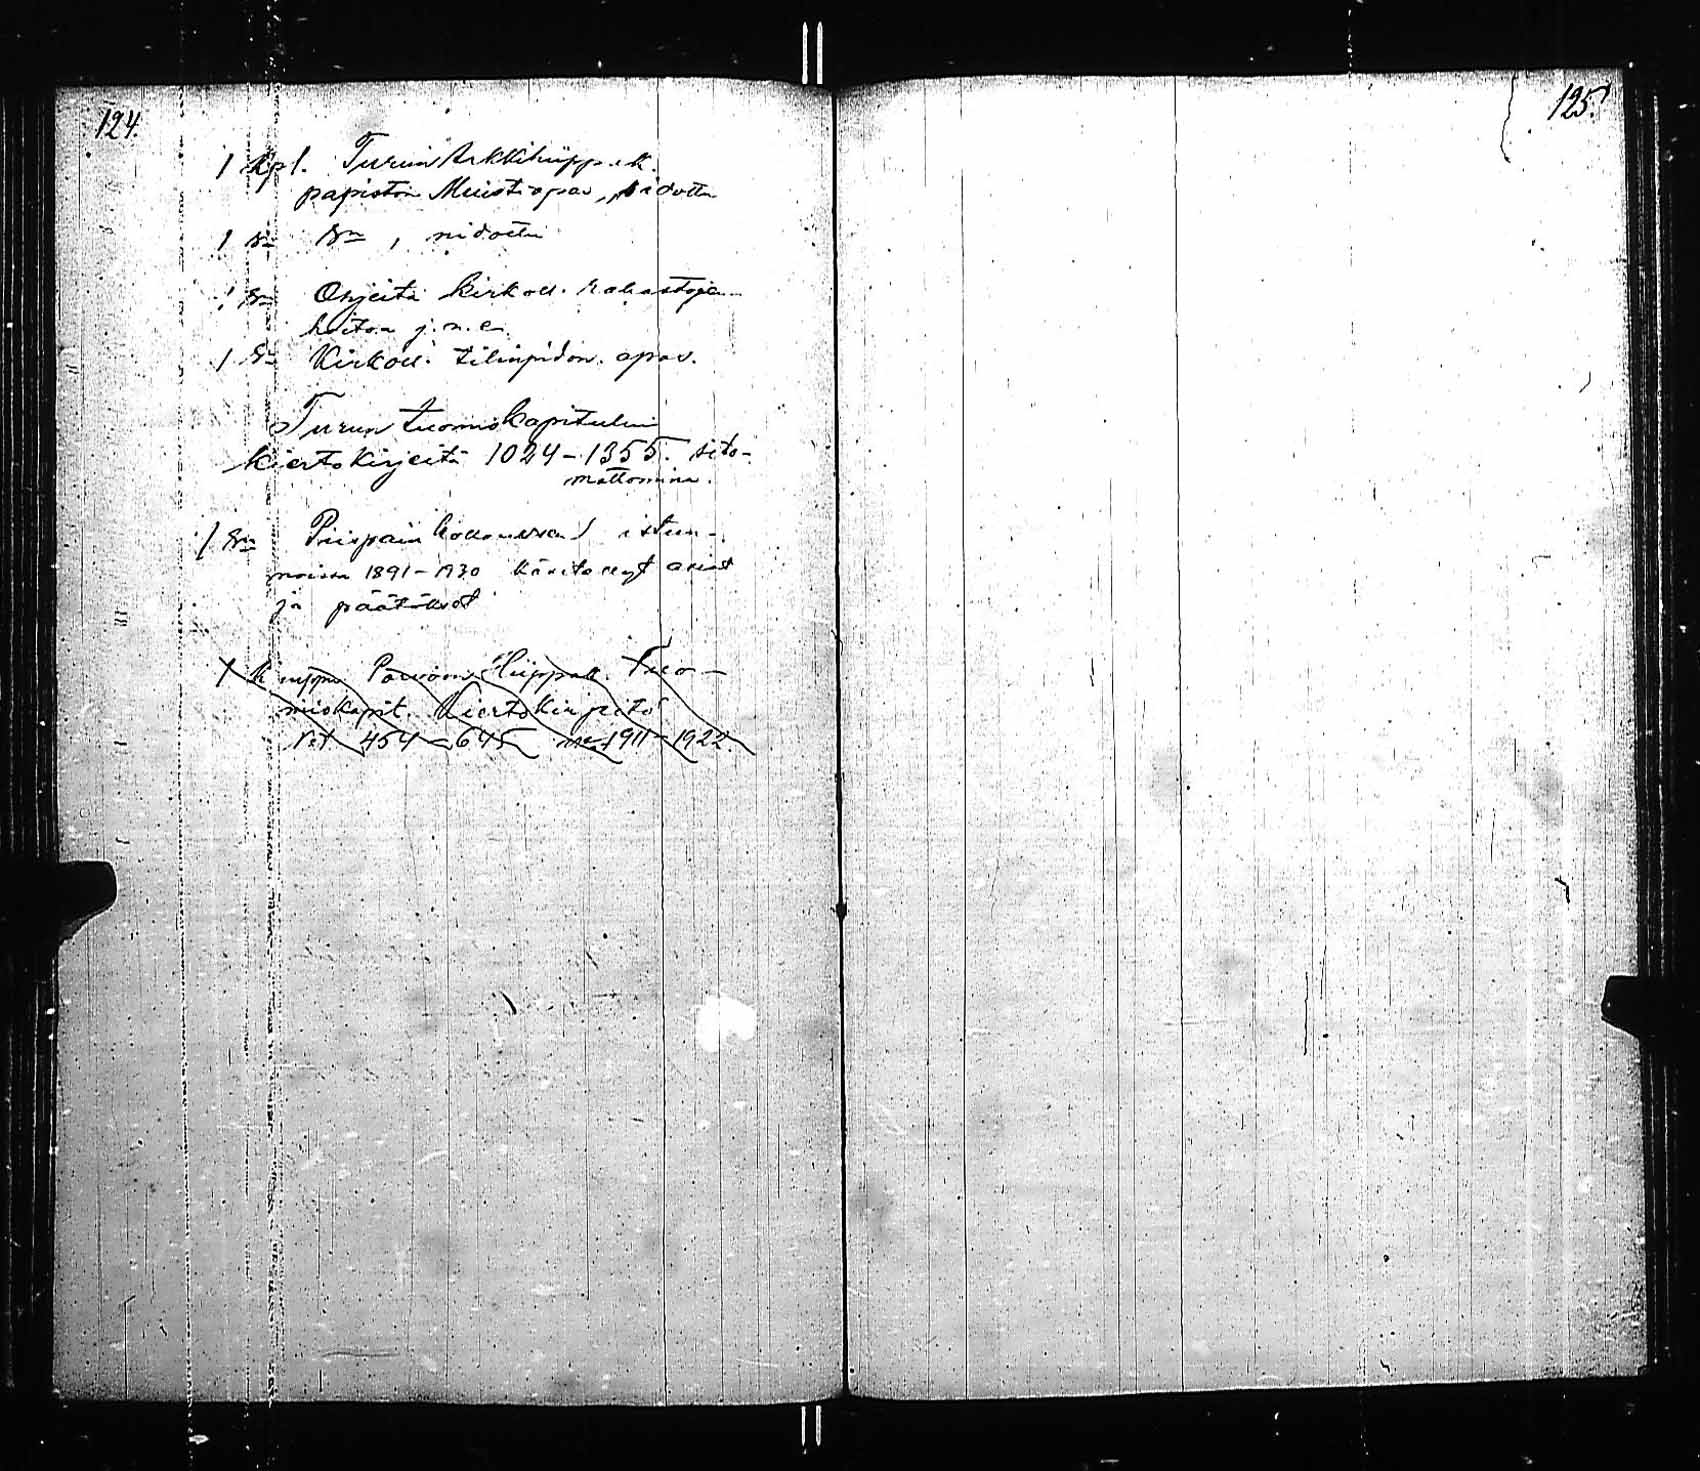 124.
1 kpl. Turun Arkkihiippak.
papiston Muistiopas, sidottu
1 Sn Sn, nidottu
1 Sn Ohjeita kirkoll. rahastojen
hoitoa j.n.e.
1 Sn Kirkoll. tilinpidon. opas.
Turun tuomiokapitulin
kiertokirjeitä 1024-1355. sito-
mattomina.
1 Sn Piispain kokouksen istun-
noissa 1891-1930 käsitellyt asiat
ja päätökset
1 Porvoon Hiippak. Tuo-
miokapit. Kiertokirjeitä
N:t 454-645 1911-1922.
125.